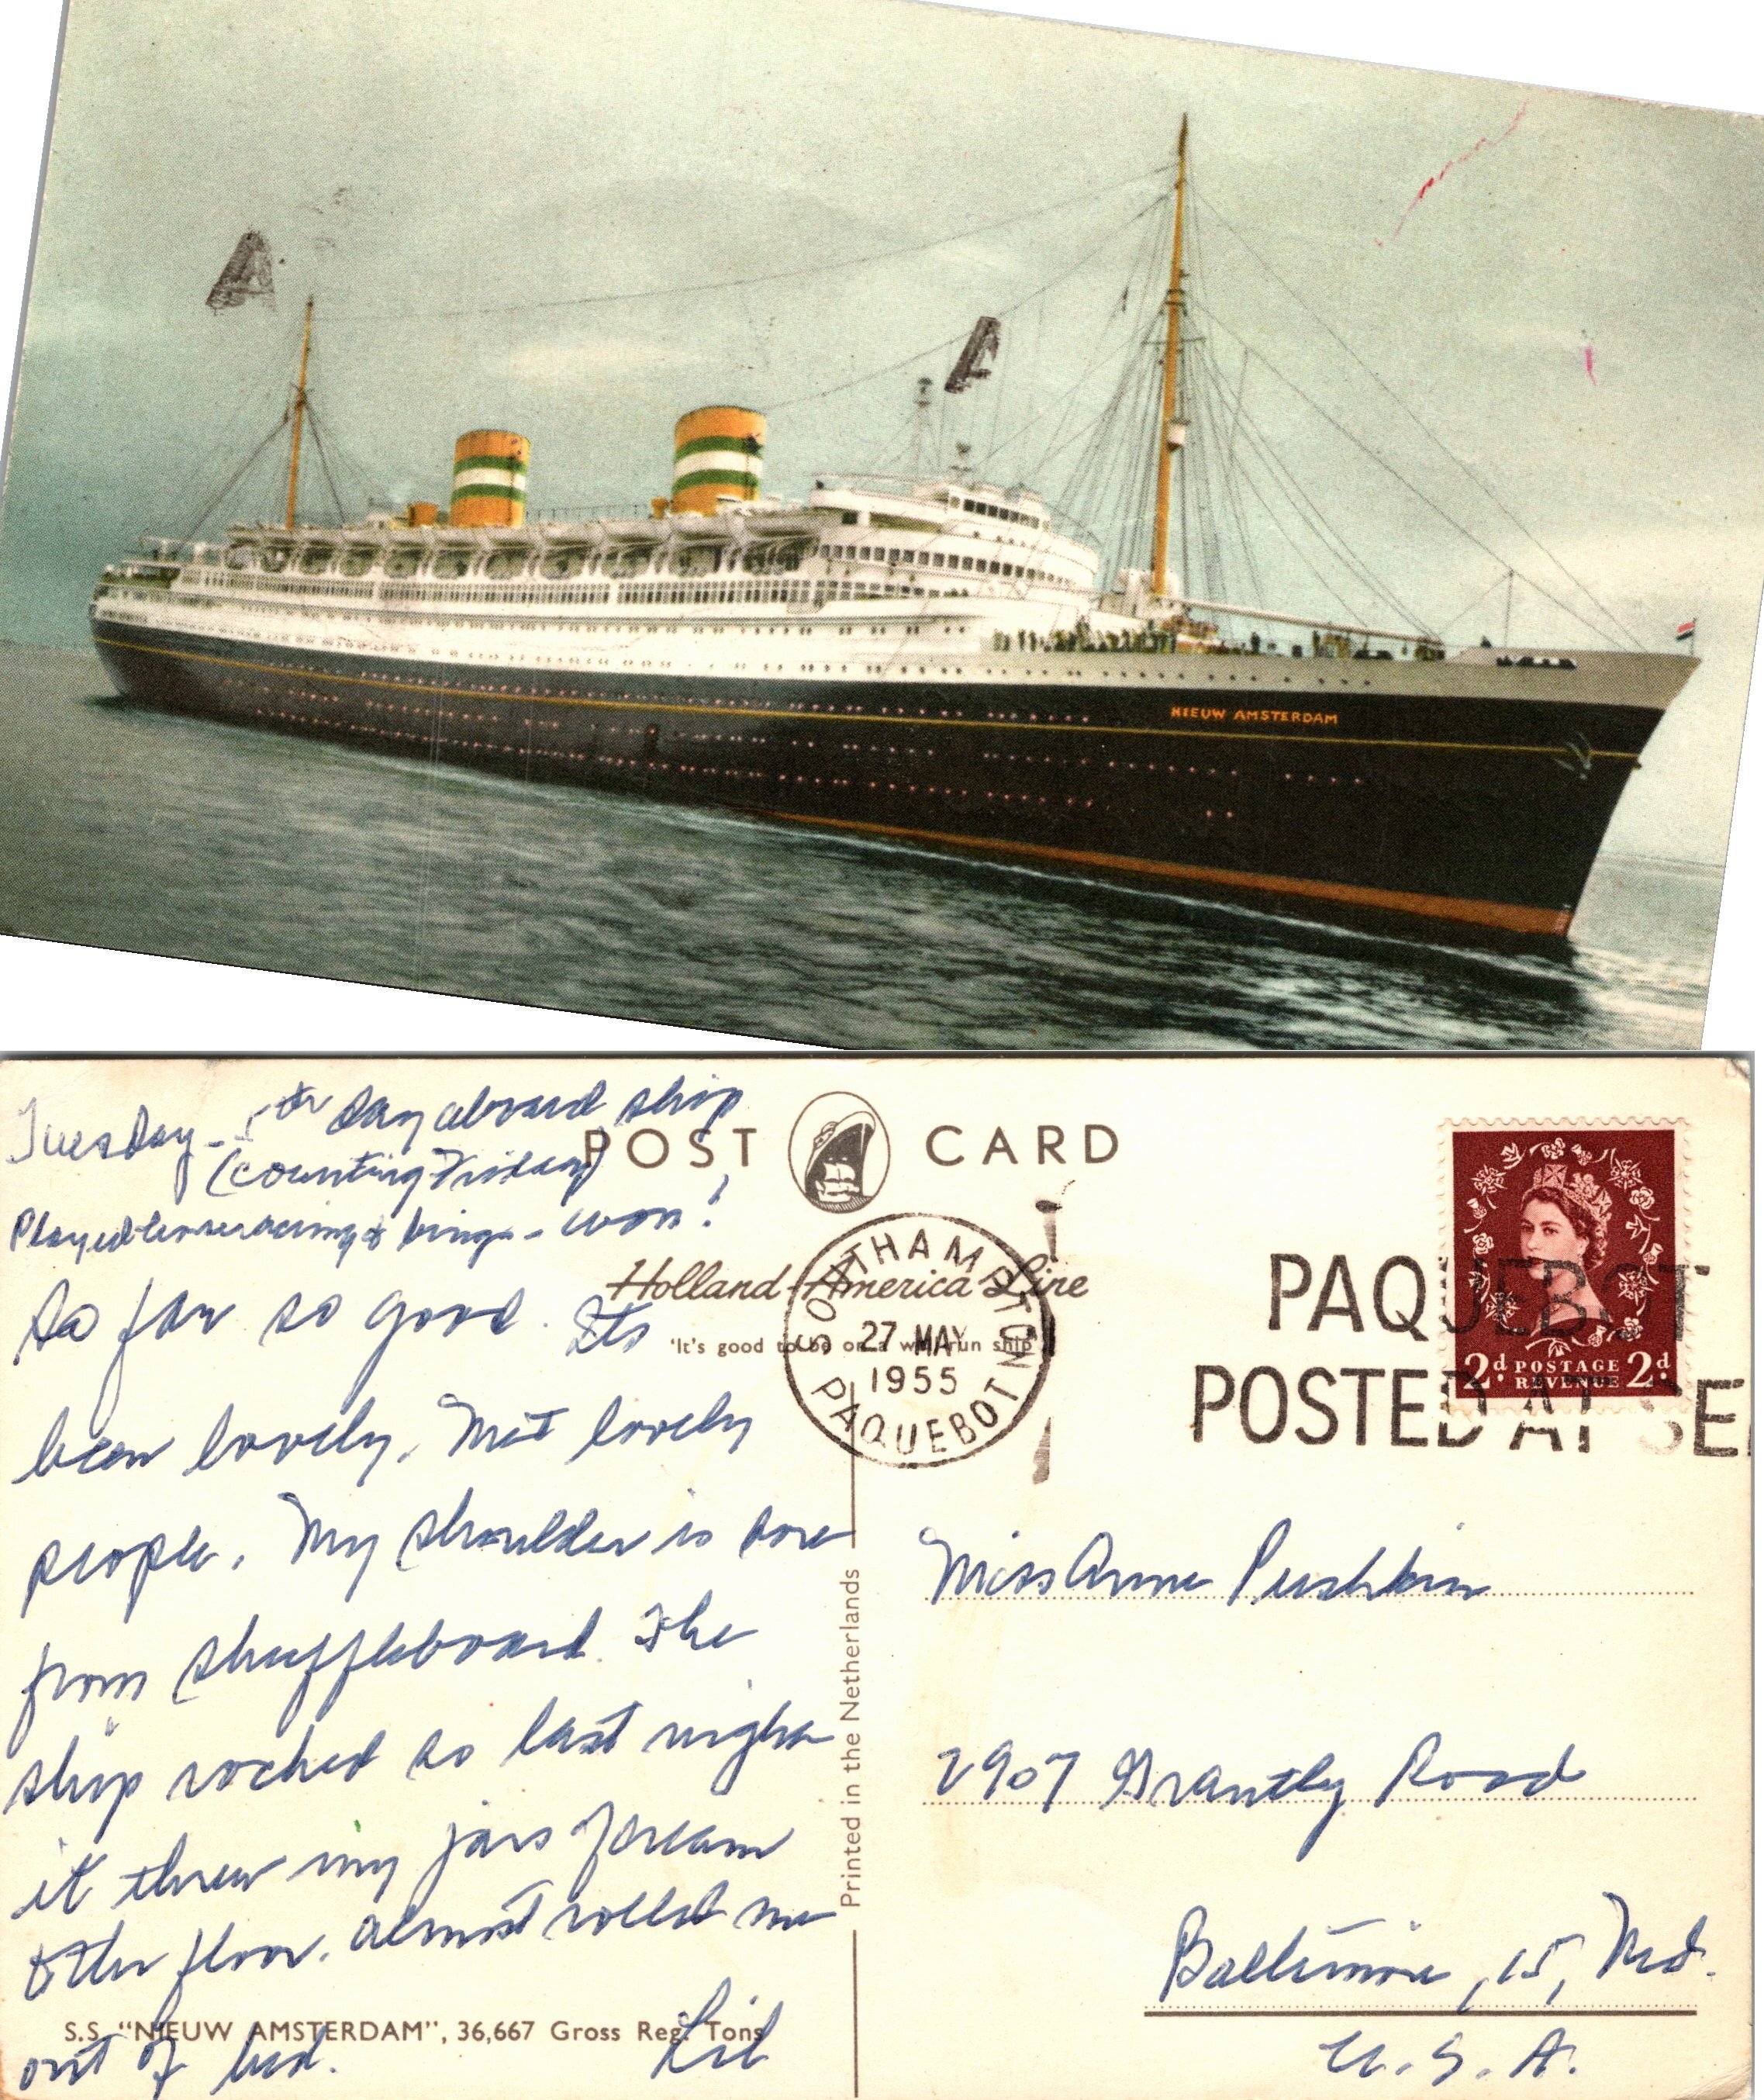 NIEUW AMSTERDAM
Tuesday - 5th day aboard ship
(counting Friday)
Played horseracing & bingo - won!
So far so good. Its
been lovely. Met lovely
people. My shoulder is sore
from shuffleboard. The
ship rocked so last night
it threw my jars of cream
to the floor. almost rolled me
out of bed. Lil
POST CARD
Holland-America Line
'It's good to be on a well-run ship'
SOUTHAMPTON
27 MAY
1955
PAQUEBOT
PAQUEBOT
POSTED AT SE
2d POSTAGE REVENUE 2d
Printed in the Netherlands
Miss Anne Pushkin
2907 Grantly Road
Baltimore, 15, Md.
U.S.A.
S.S. "NIEUW AMSTERDAM", 36,667 Gross Reg. Tons